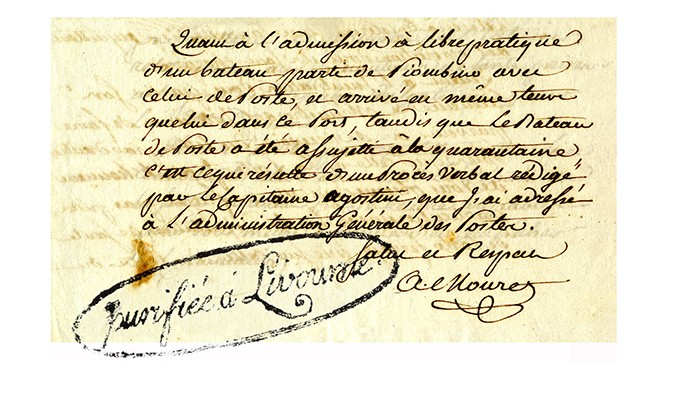 Quant à l'admission à libre pratique
d'un bateau parti de Piombino avec
celui de Poste, et arrivé en même tems
que lui dans ce Port, tandis que le Bateau
de Poste a été assujetti à la quarantaine
c'est ce qui résulte d'un Procès verbal rédigé
par le Capitaine agostini, que j'ai adressé
à l'administration Générale des Postes.
Salut et Respect
purifiée à Livourne.